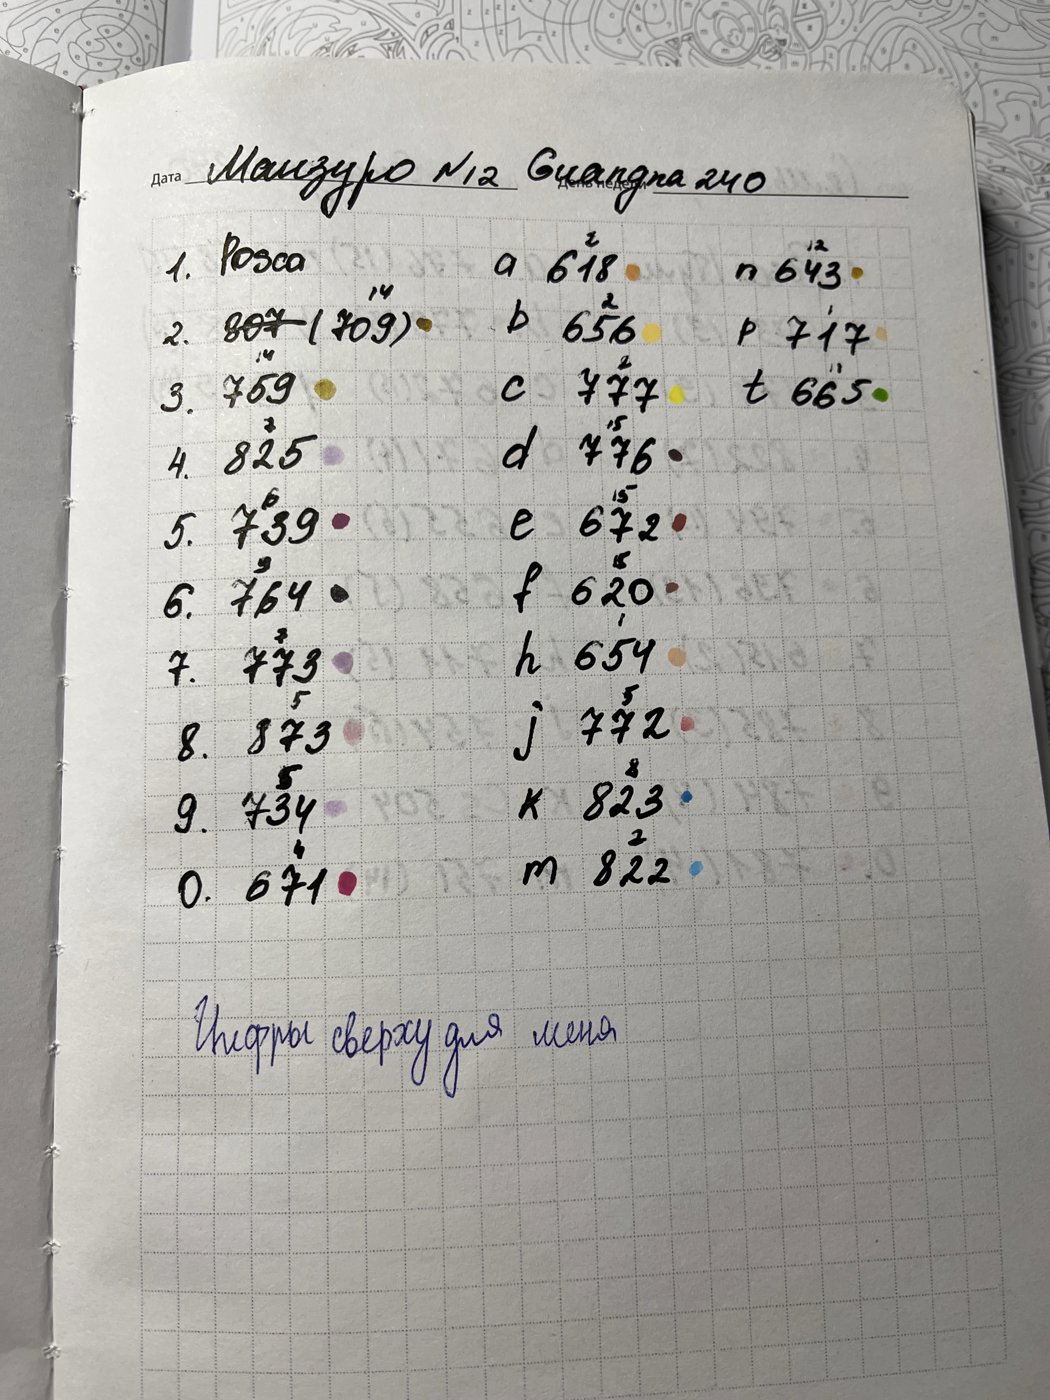 Дата Манзуро N12 Guangna 240
1. Posca
2. 807 (709) 14
3. 759 14
4. 825 7
5. 739 6
6. 764 9
7. 773 7
8. 873 5
9. 734 5
0. 671 4
a 618 2
b 656 2
c 777 2
d 776 15
e 672 15
f 620 15
h 654 1
j 772 5
k 823 8
m 822 2
n 643 12
p 717 1
t 665 11
Цифры сверху для меня